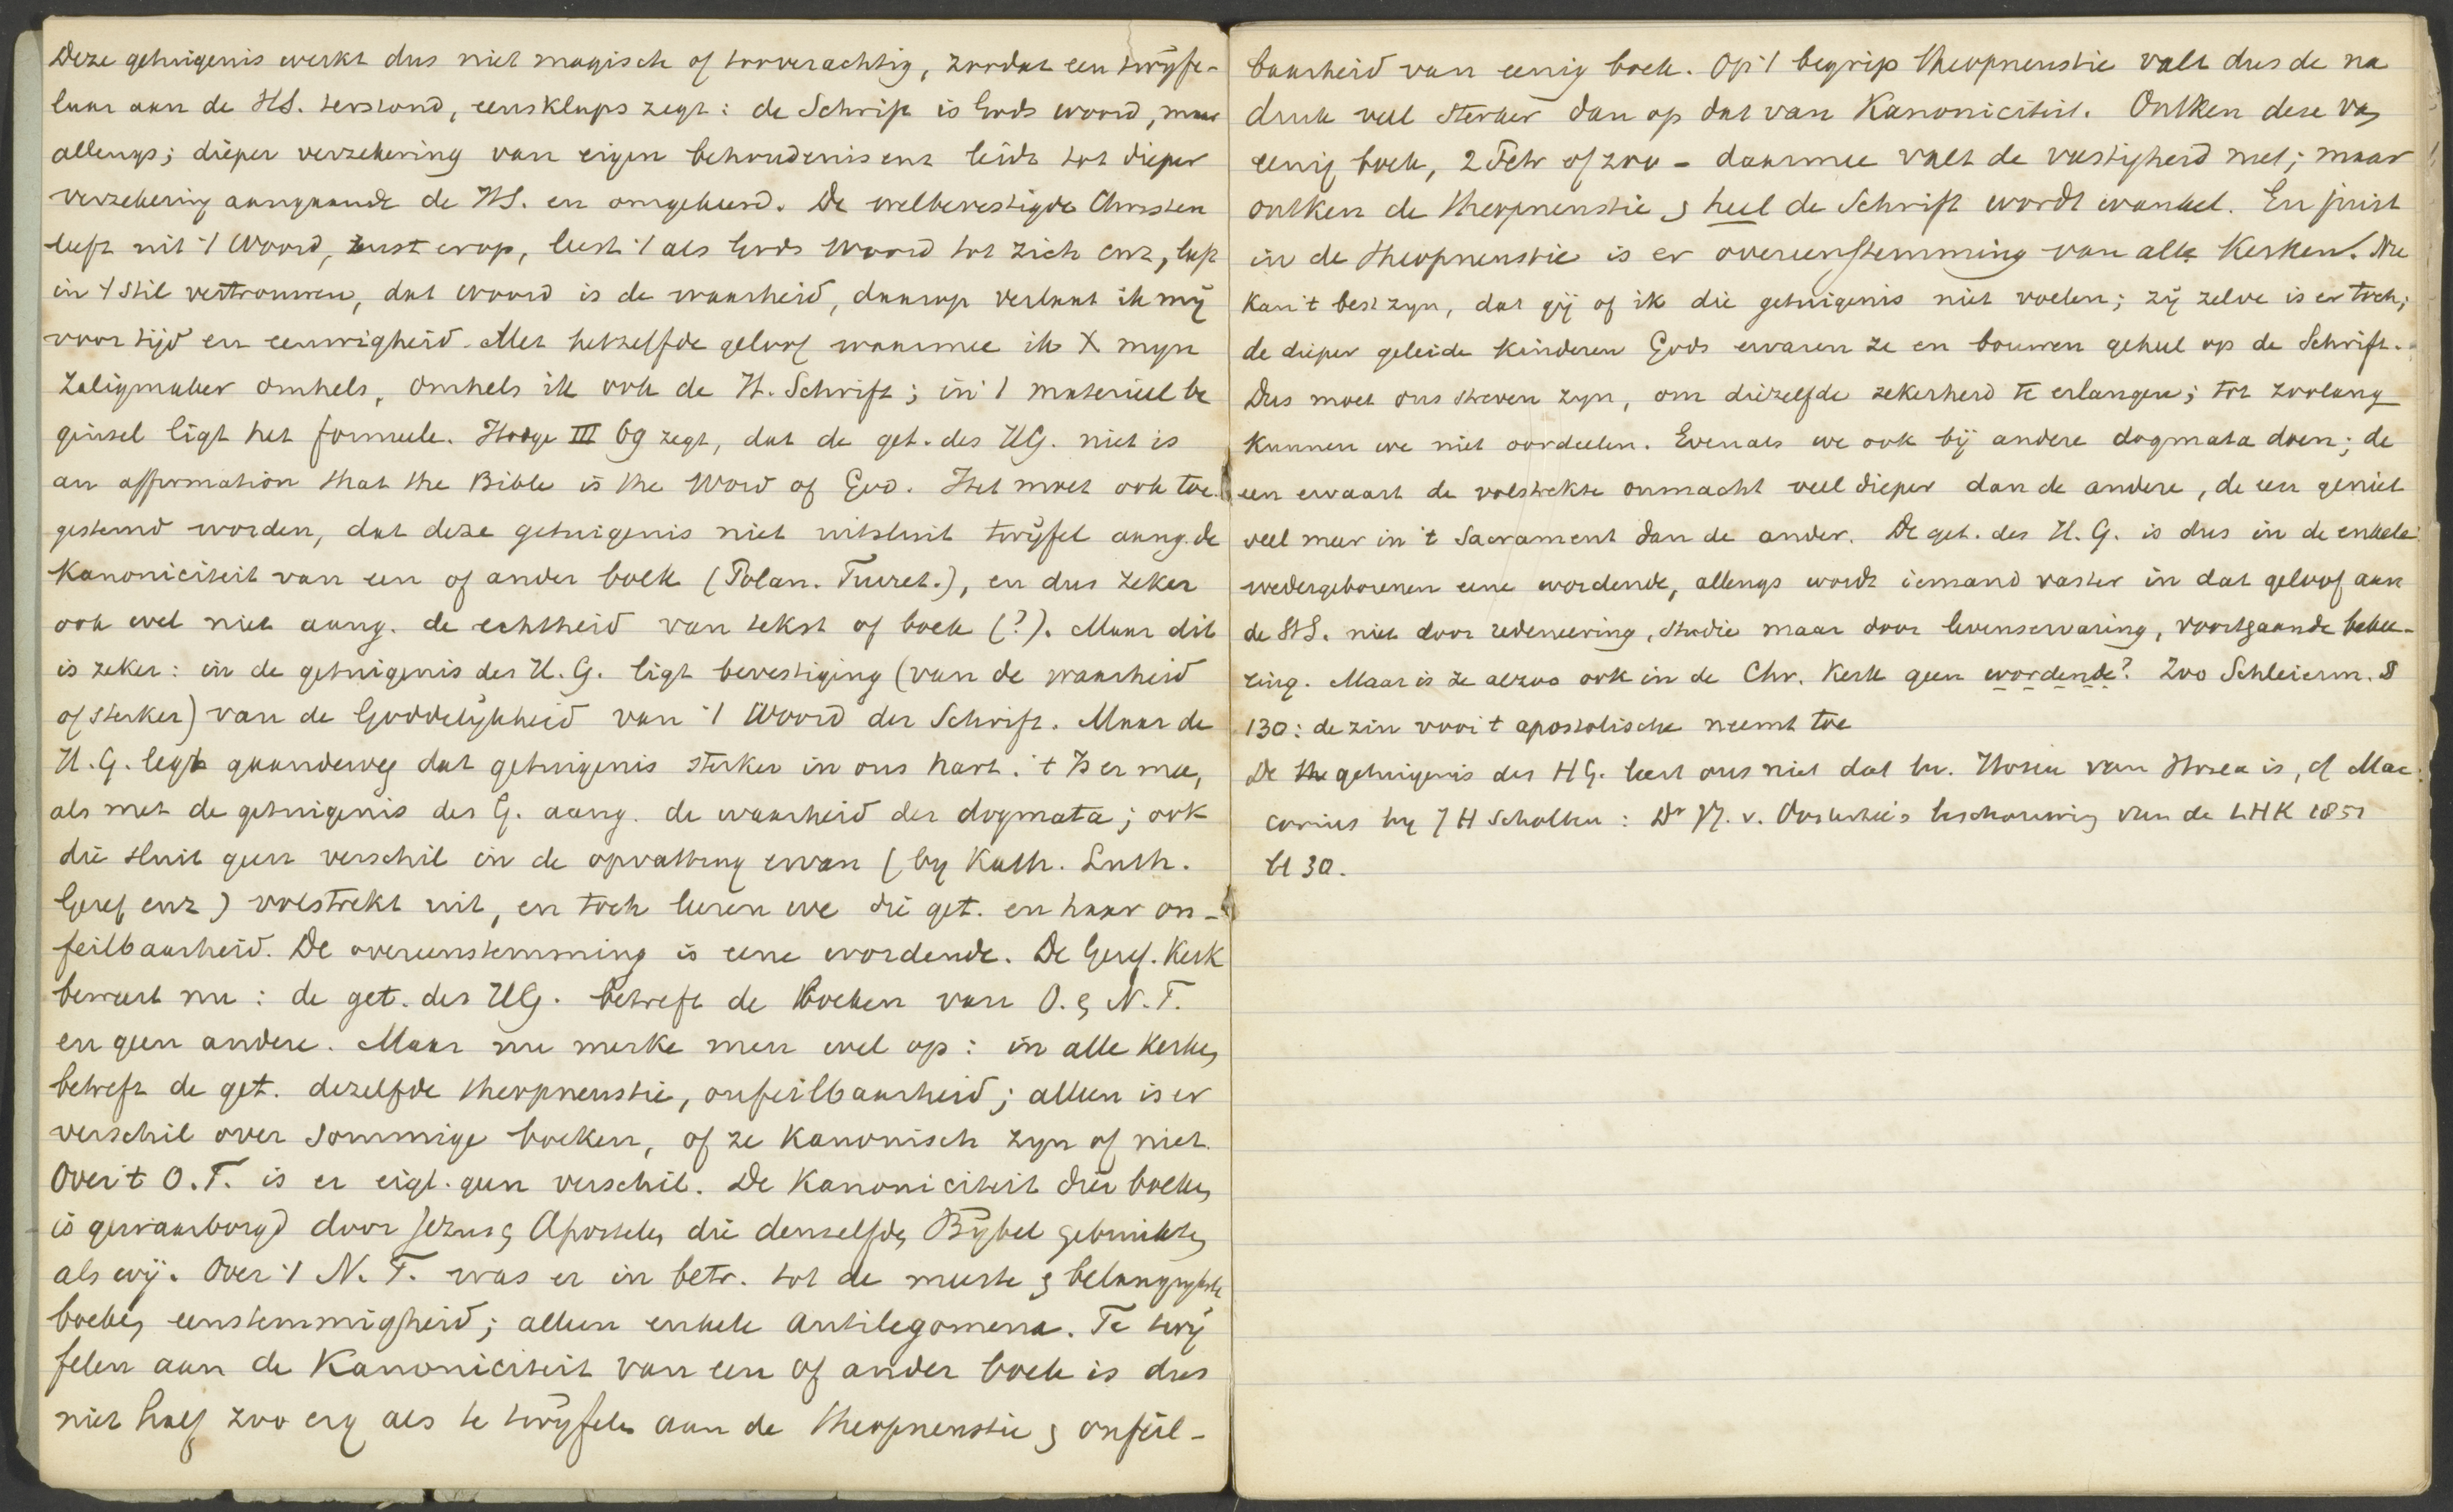 Deze getuigenis werkt dus niet magisch of tooverachtig, zoodat een twijfe-
laar aan de HS. terstond, eensklaps zegt: de Schrift is Gods woord, maar
allengs; dieper verzekering van eigen behoudenis enz leidt tot dieper
verzekering aangaande de HS. en omgekeerd. De welbevestigde Christen
leeft uit 't Woord, rust erop, leest 't als Gods Woord tot zich enz, leeft
in 't stil vertrouwen, dat woord is de waarheid, daarop verlaat ik mij
voor tijd en eeuwigheid. Met hetzelfde geloof waarmee ik X mijn
Zaligmaker omhels, omhels ik ook de H. Schrift; in 't materieel be
ginsel ligt het formeele. Hodge III 69 zegt, dat de get. des HG. niet is
an affirmation that the Bible is the Word of God. Het moet ook toe-
gestemd worden, dat deze getuigenis niet uitsluit twijfel aang. de
Kanoniciteit van een of ander boek (Polan. Turret.), en dus zeker
ook wel niet aang. de echtheid van tekst of boek (?). Maar dit
is zeker: in de getuigenis des H.G. ligt bevestiging (van de waarheid
of sterker) van de Goddelijkheid van 't Woord der Schrift. Maar de
H.G. legt gaandeweg dat getuigenis sterker in ons hart. 't Is er mee,
als met de getuigenis des G. aang. de waarheid der dogmata; ook
die sluit geen verschil in de opvatting ervan (by Kath. Luth.
Geref enz) volstrekt uit, en toch leeren we die get. en haar on-
feilbaarheid. De overeenstemming is eene wordende. De Geref. Kerk
beweert nu: de get. des HG. betreft de boeken van O. & N.T.
en geen andere. Maar nu merke men wel op: in alle kerken
betreft de get. dezelfde theopneustie, onfeilbaarheid; alleen is er
verschil over sommige boeken, of ze Kanonisch zyn of niet.
Over 't O.T. is er eigl. geen verschil. De Kanoniciteit dier boeken
is gewaarborgd door Jezus & Apostelen die denzelfden Bybel gebruikten
als wij. Over 't N.T. was er in betr. tot de meeste & belangrykste
boeken eenstemmigheid; alleen enkele Antilegomena. Te twij
felen aan de Kanoniciteit van een of ander boek is dus
niet half zoo erg als te twijfelen aan de theopneustie & onfeil-
baarheid van eenig boek. Op 't begrip theopneustie valt dus de na
druk veel sterker dan op dat van Kanoniciteit. Ontken deze van
eenig boek, 2 Petr of zoo - daarmee valt de vastigheid niet; maar
ontken de theopneustie & heel de Schrift wordt wankel. En juist
in de theopneustie is er overeenstemming van alle Kerken. Nu
kan 't best zyn, dat gij of ik die getuigenis niet voelen; zij zelve is er toch;
de dieper geleide kinderen Gods ervaren ze en bouwen geheel op de Schrift.
Dus moet ons streven zyn, om diezelfde zekerheid te erlangen; tot zoolang
kunnen we niet oordeelen. Evenals we ook bij andere dogmata doen; de
een ervaart de volstrekte onmacht veel dieper dan de andere, de een geniet
veel meer in 't Sacrament dan de ander. De get. des H.G. is dus in de enkele
wedergeborenen eene wordende, allengs wordt iemand vaster in dat geloof aan
de HS. niet door redeneering, studie maar door levenservaring, voortgaande bekee-
ring. Maar is ze alzoo ook in de Chr. Kerk geen wordende? Zoo Schleierm. §
130: de zin voor 't apostolische neemt toe
De getuigenis des HG. leert ons niet dat bv. Hosea van Hosea is, cf Mac-
covius by JH Scholten: Dr JJ. v. Oosterzee's beschouwing van de LHK 1851
bl 30.